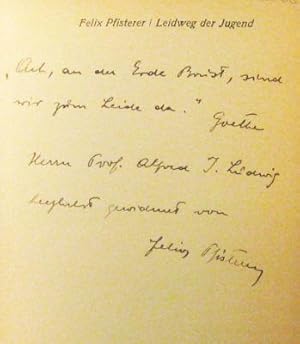 Felix Pfisterer / Leidweg der Jugend
„Ach, an der Erde Brust, sind
wir zum Leide da."
Goethe
Herrn Prof. Alfred J. Ludwig
herzlichst gewidmet von
Felix Pfisterer